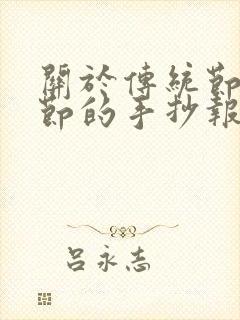 關於傳統節
節的手抄報
呂永志